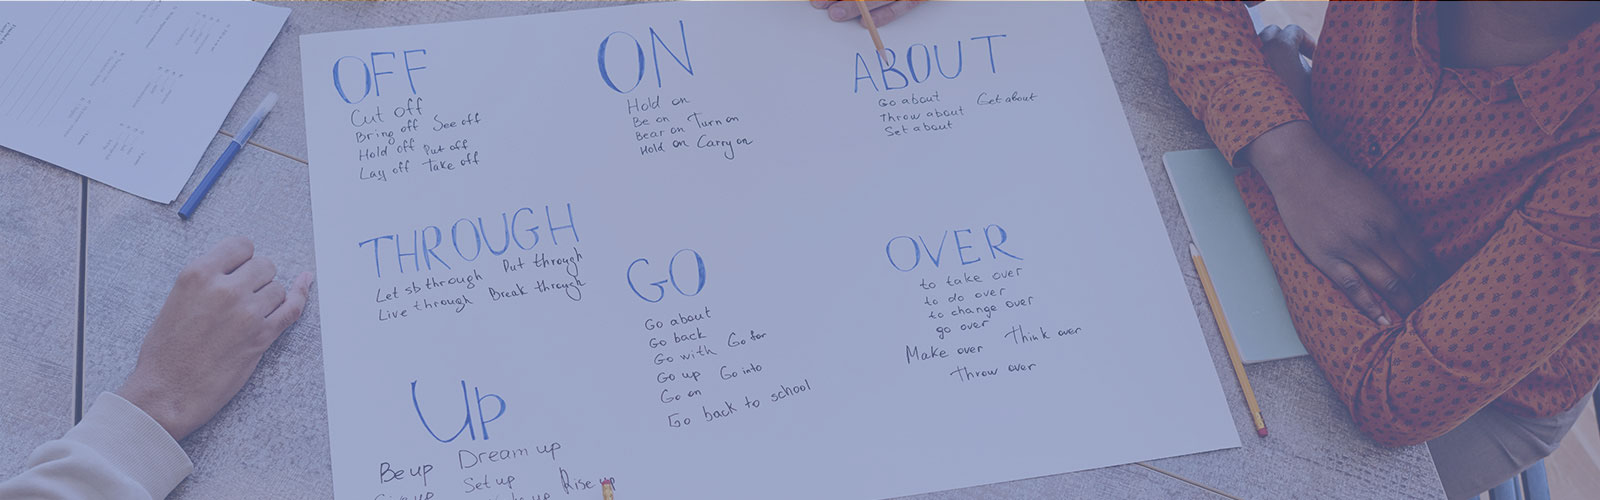 OFF
Cut off
Bring off See off
Hold off Put off
Lay off Take off
ON
Hold on
Be on
Bear on Turn on
Hold on Carry on
ABOUT
Go about Get about
Throw about
Set about
THROUGH
Let sb through Put through
Live through Break through
GO
Go about
Go back
Go with Go for
Go up Go into
Go on
Go back to school
OVER
to take over
to do over
to change over
go over
Make over Think over
Throw over
UP
Be up Dream up
up Set up Rise up
up